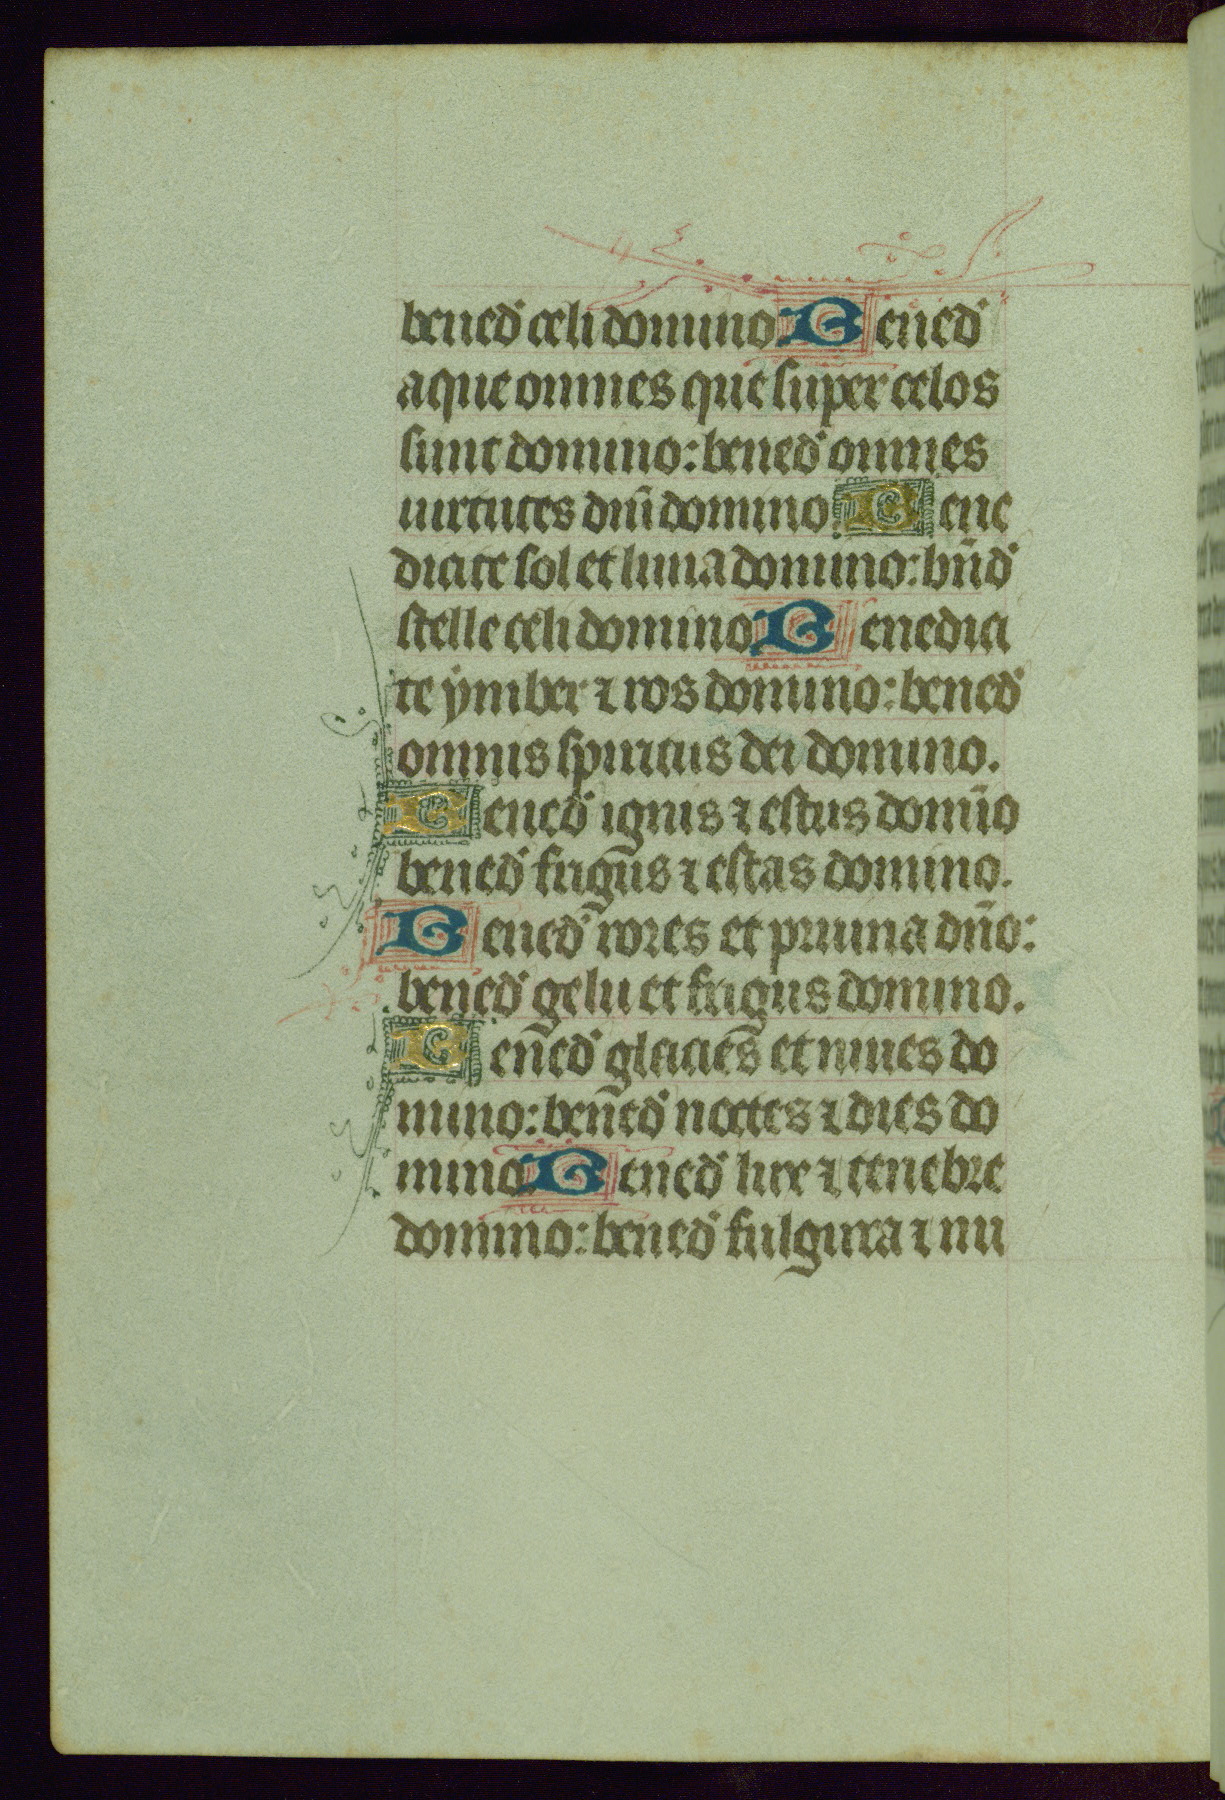 bened̉ celi domino Bened̉
aque omnes que super celos
sunt domino: bened̉ omnes
uirtutes dñi domino. Bene
dicite sol et luna domino: bñd̉
stelle celi domino Benedici
te ymber ⁊ ros domino: bened̉
omnis spiritus dei domino.
Bened̉ ignis ⁊ estus domĩo
bened̉ frigus ⁊ estas domino.
Bened̉ rores et pruina dño:
bened̉ gelu et frigus domino.
Bened̉ glacies et niues do
mino: bened̉ noctes ⁊ dies do
mino Bened̉ luce ⁊ tenebre
domino: bened̉ fulgura ⁊ nu